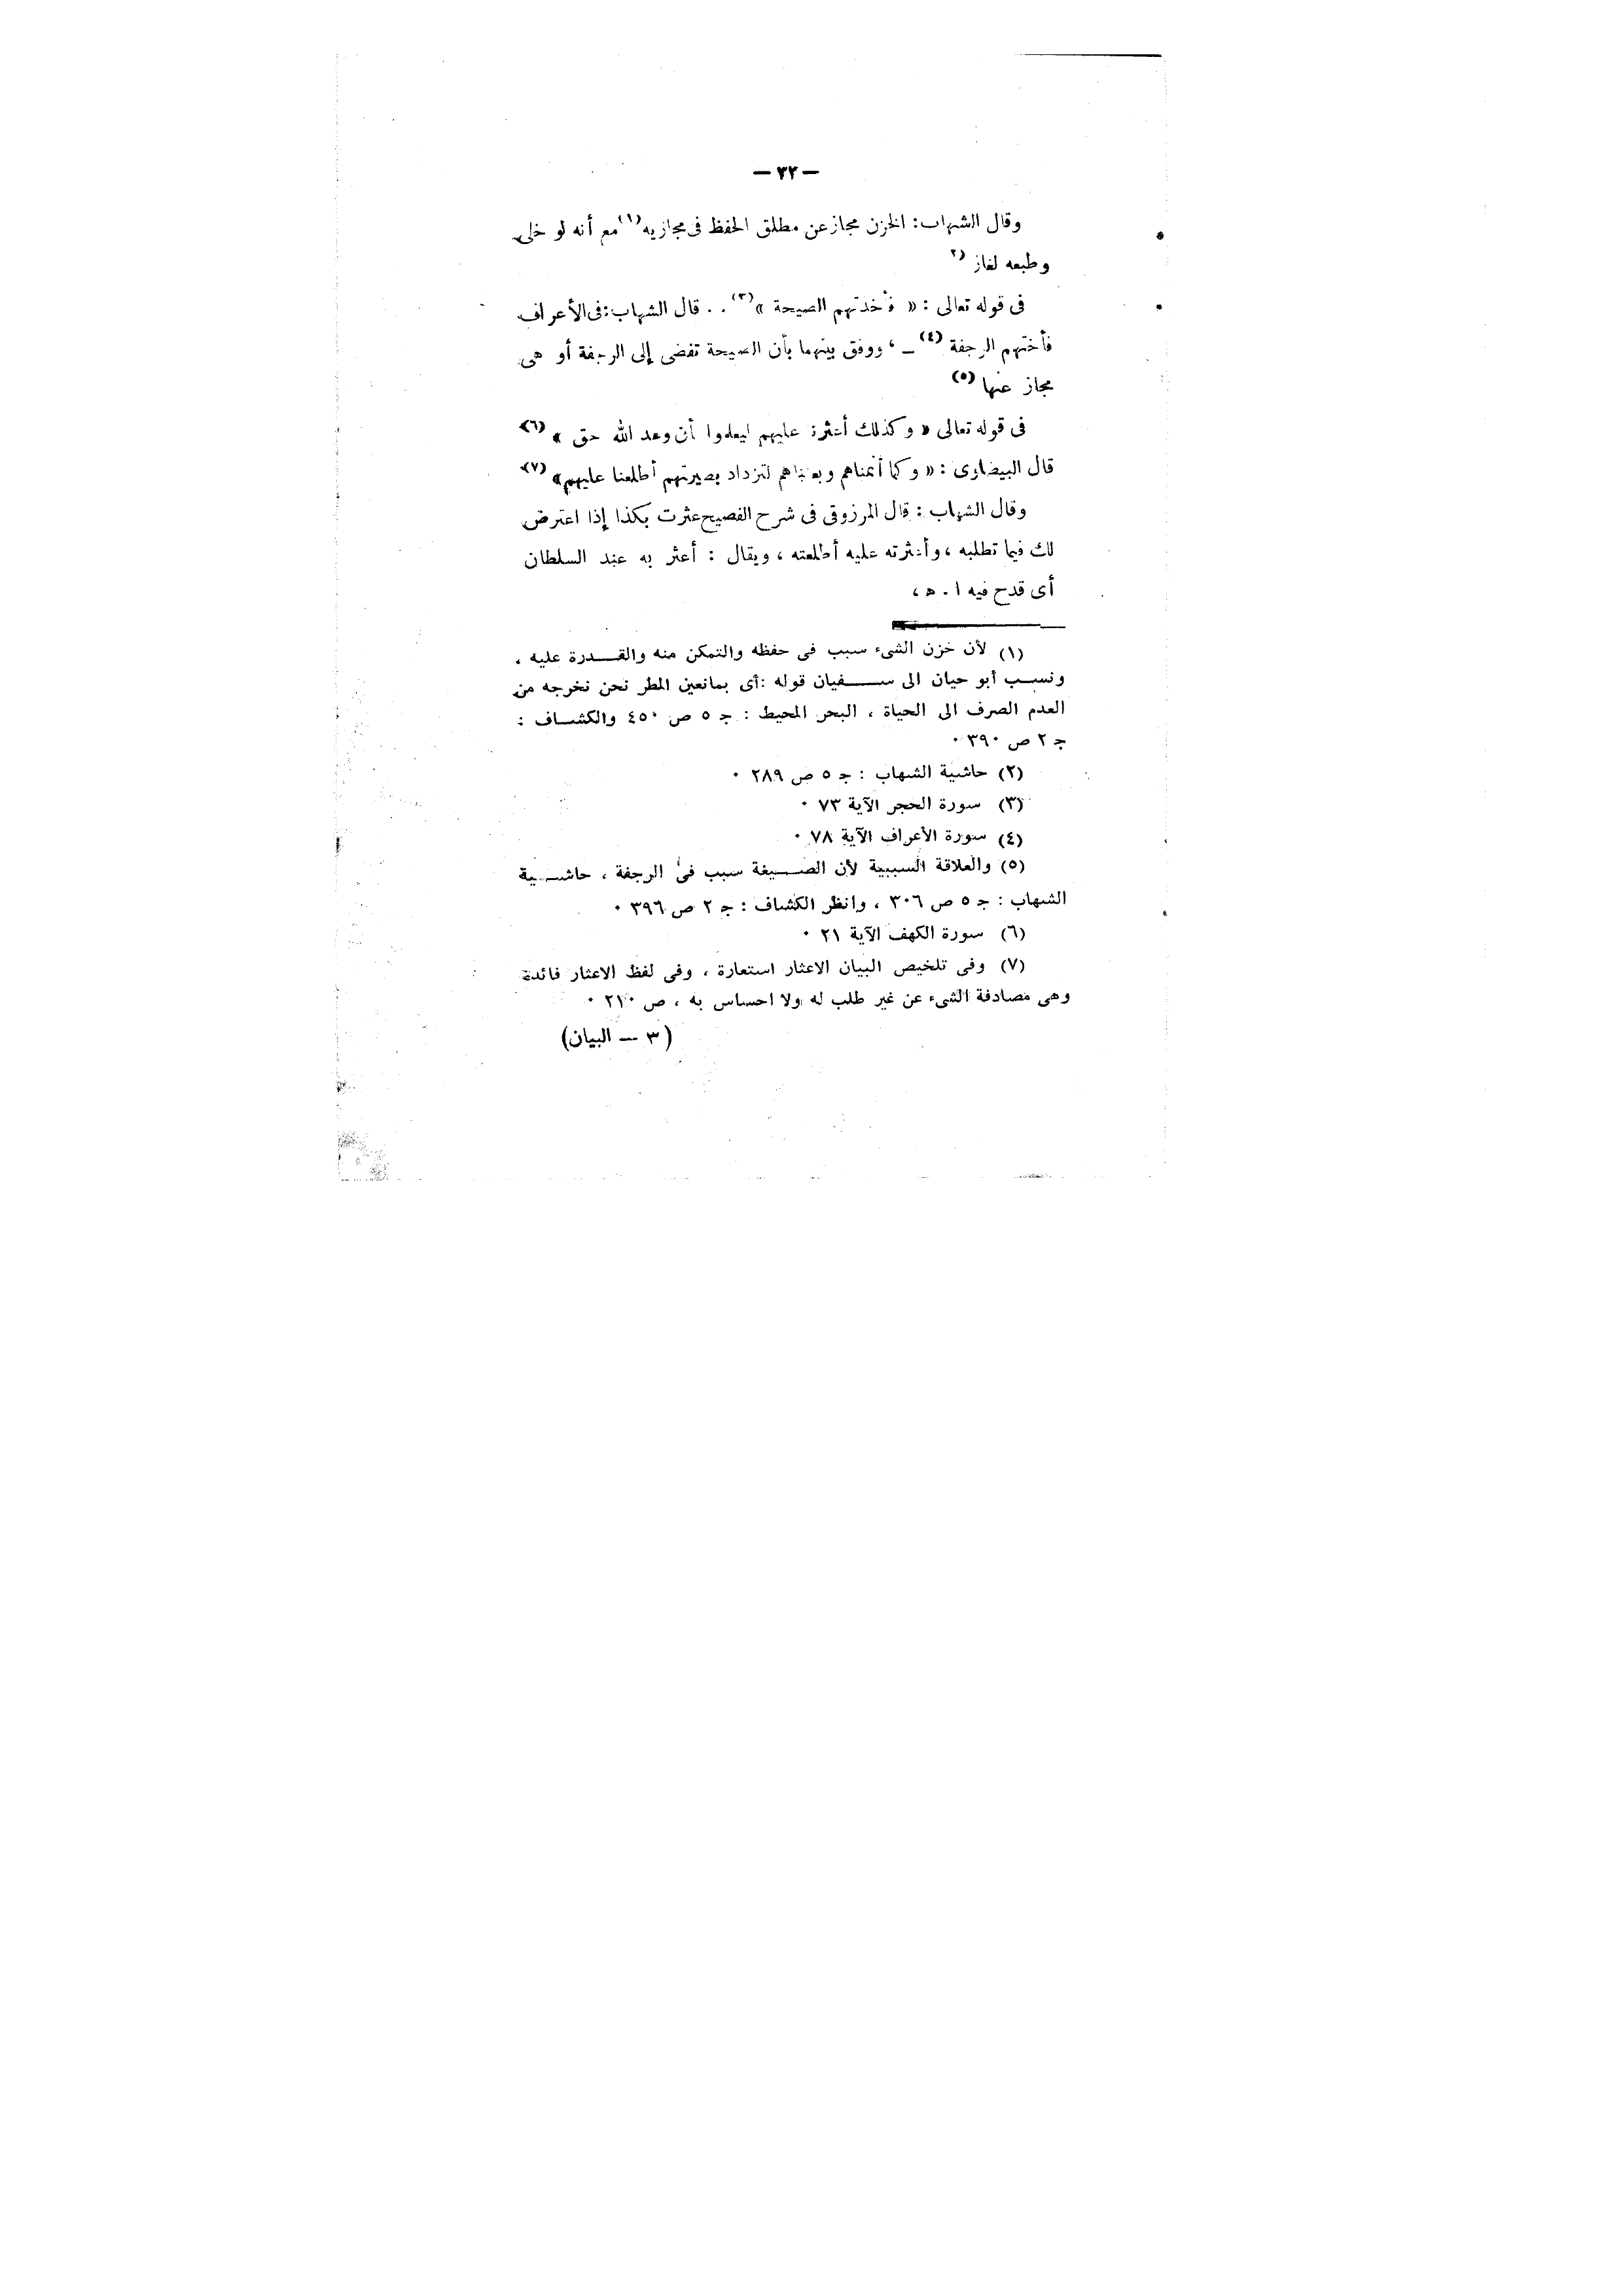 — ٣٣ —
وقال الشهاب: الخزن مجاز عن مطلق الحفظ فى مجازيه (١) مع أنه لو خلى
وطبعه لغار (٢
فى قوله تعالى : « فأخذتهم الصيحة » (٣) . . قال الشهاب: فى الأعراف
فأختهم الرجفة (٤) ــ ، ووفق بينهما بأن الصيحة تفضى إلى الرجفة أو هى
مجاز عنها (٥)
فى قوله تعالى « وكذلك أعثرنا عليهم ليعلموا أن وعد الله حق » (٦)
قال البيضاوى : « وكما أنمناهم وبعثناهم لتزداد بصيرتهم أطلعنا عليهم » (٧)
وقال الشهاب : قال المرزوقى فى شرح الفصيح عثرت بكذا إذا اعترض
لك فيما تطلبه ، وأعثرته عليه أطلعته ، ويقال : أعثر به عند السلطان
أى قدح فيه ا . ه ،
(١) لأن خزن الشىء سبب فى حفظه والتمكن منه والقـــدرة عليه ،
ونسـب أبو حيان الى ســـفيان قوله : أى بمانعين المطر نحن نخرجه من
العدم الصرف الى الحياة ، البحر المحيط : ج ٥ ص ٤٥٠ والكشــاف :
ج ٢ ص ٣٩٠ ٠
(٢) حاشية الشهاب : ج ٥ ص ٢٨٩ ٠
(٣) سورة الحجر الآية ٧٣ ٠
(٤) سورة الأعراف الآية ٧٨ ٠
(٥) والعلاقة السببية لأن الصــيغة سبب فى الرجفة ، حاشــية
الشهاب : ج ٥ ص ٣٠٦ ، وانظر الكشاف : ج ٢ ص ٣٩٦ ٠
(٦) سورة الكهف الآية ٢١ ٠
(٧) وفى تلخيص البيان الاعثار استعارة ، وفى لفظ الاعثار فائدة
وهى مصادفة الشىء عن غير طلب له ولا احساس به ، ص ٢١٠ ٠
(٣ — البيان)